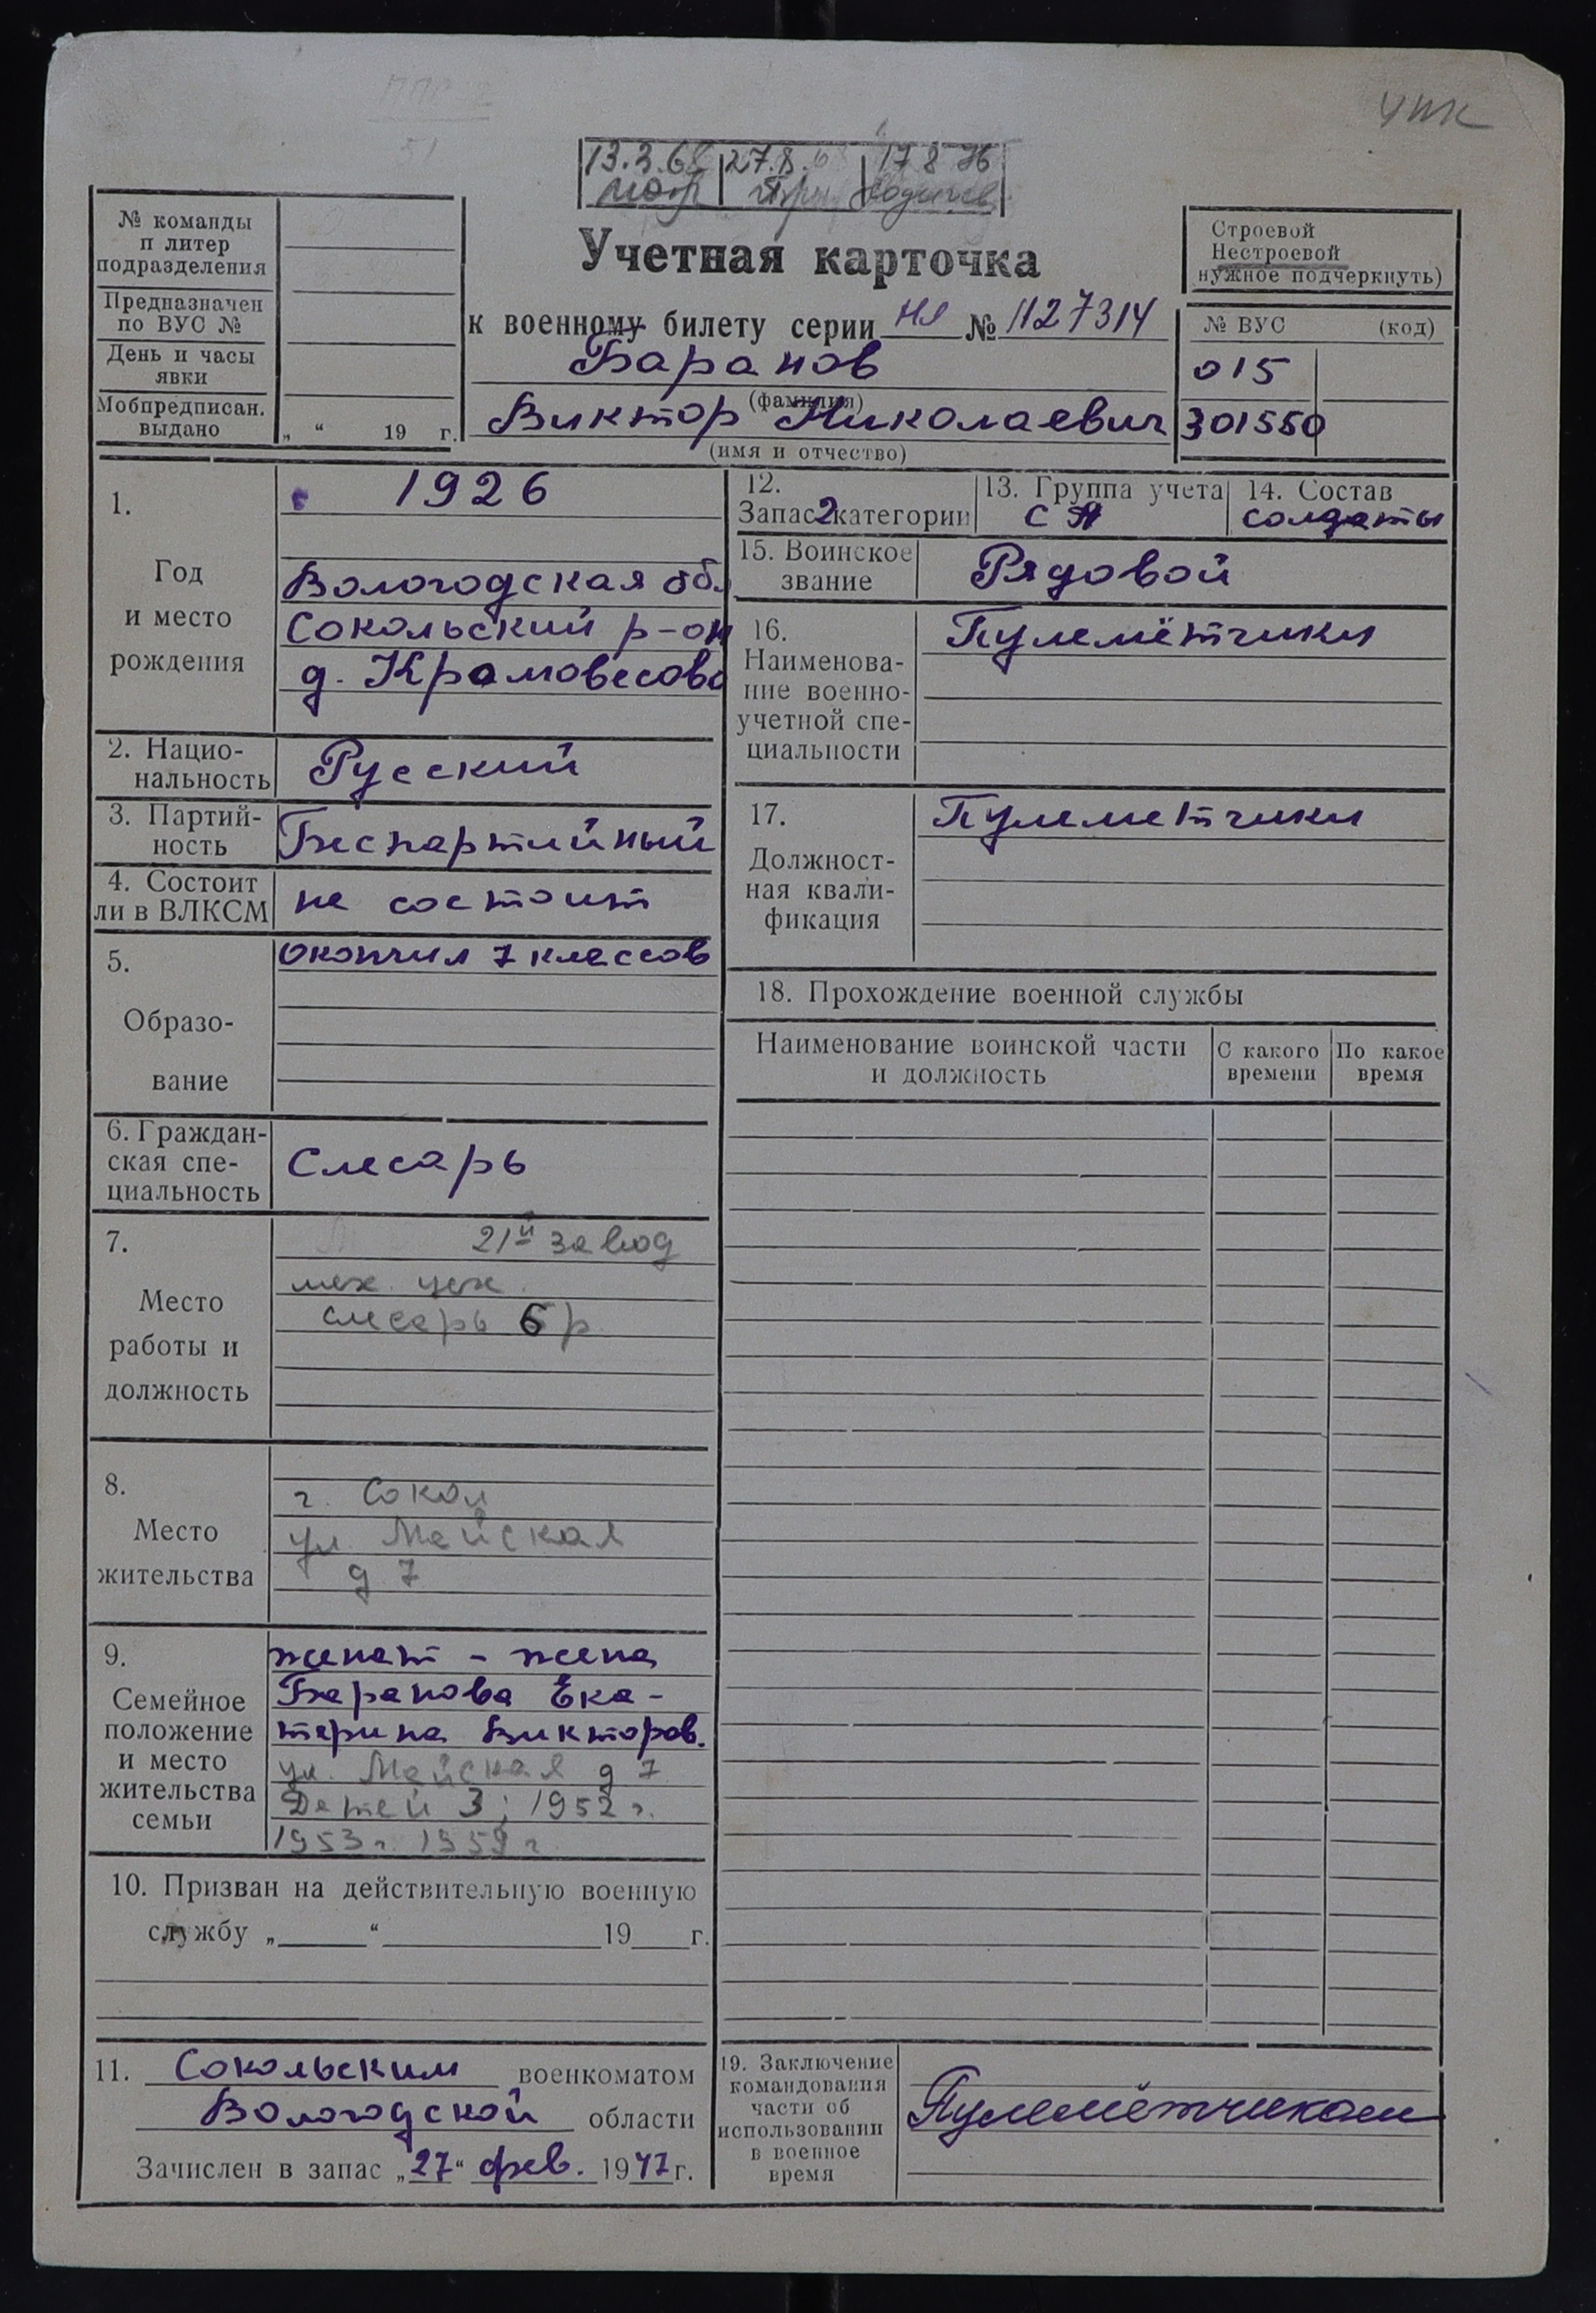 УПК
13.3.68 27.8. 17 8 76
№ команды
и литер
подразделения
Предназначен
по ВУС №
День и часы
явки
Мобпредписан.
выдано
„ “ 19 г.
Учетная карточка
к военному билету серии НЯ № 1127314
Баранов
(фамилия)
Виктор Николаевич
(имя и отчество)
Строевой
Нестроевой
нужное подчеркнуть)
№ ВУС (код)
015
301550
1.
Год
и место
рождения
1926
Вологодская обл
Сокольский р-он
д.
2. Нацио-
нальность
Русский
3. Партий-
ность
Беспартийный
4. Состоит
ли в ВЛКСМ
не состоит
5.
Образо-
вание
Окончил 7 классов
6. Граждан-
ская спе-
циальность
Слесарь
7.
Место
работы и
должность
21й завод
мех. цех.
слесарь 6 р
8.
Место
жительства
г. Сокол
ул. Майская
д 7
9.
Семейное
положение
и место
жительства
семьи
женат - жена
Баранова Ека-
терина Викторов.
ул. Майская д 7
Детей 3; 1952 г.
1953 г. 1959 г
10. Призван на действительную военную
службу „ “ 19 г.
11. Сокольским военкоматом
Вологодской области
Зачислен в запас „27“ фев. 1947 г.
12.
Запас 2 категории
13. Группа учета
СА
14. Состав
солдаты
15. Воинское
звание
Рядовой
16.
Наименова-
ние военно-
учетной спе-
циальности
Пулемётчики
17.
Должност-
ная квали-
фикация
Пулеметчики
18. Прохождение военной службы
Наименование воинской части
и должность
С какого
времени
По какое
время
19. Заключение
командования
части об
использовании
в военное
время
Пулемётчиком